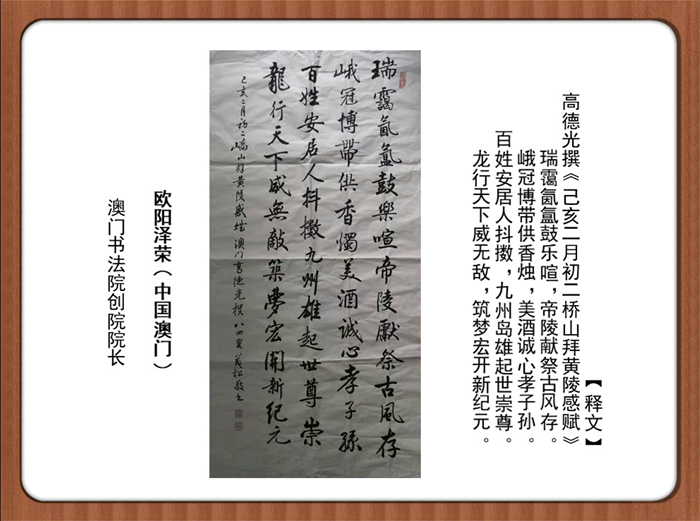 【释文】
高德光撰《己亥二月初二桥山拜黄陵感赋》
瑞霭氤氲鼓乐喧，帝陵献祭古风存。
峨冠博带供香烛，美酒诚心孝子孙。
百姓安居人抖擞，九州岛雄起世崇尊。
龙行天下威无敌，筑梦宏开新纪元。
瑞靄氤氳鼓樂喧帝陵獻祭古風存
峨冠博帶供香燭美酒誠心孝子孫
百姓安居人抖擻九州雄起世尊崇
龍行天下威無敵築夢宏開新紀元
己亥二月初二嶠山拜黃陵感賦 澳門高德光撰 八四叟
欧阳泽荣（中国澳门）
澳门书法院创院院长